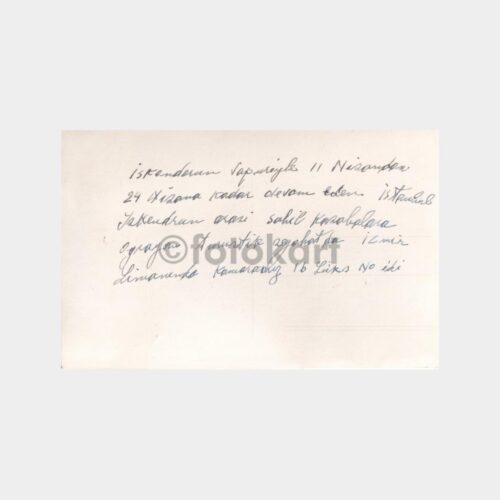 İskenderun Vapuriyle 11 Nisandan
24 Nisana kadar devam eden İstanbul
İskendrun arası sahil kasabalara
ograyan turistik seyahatda izmir
limanında Kamaramız 16 Lüks No iki
©fotokart